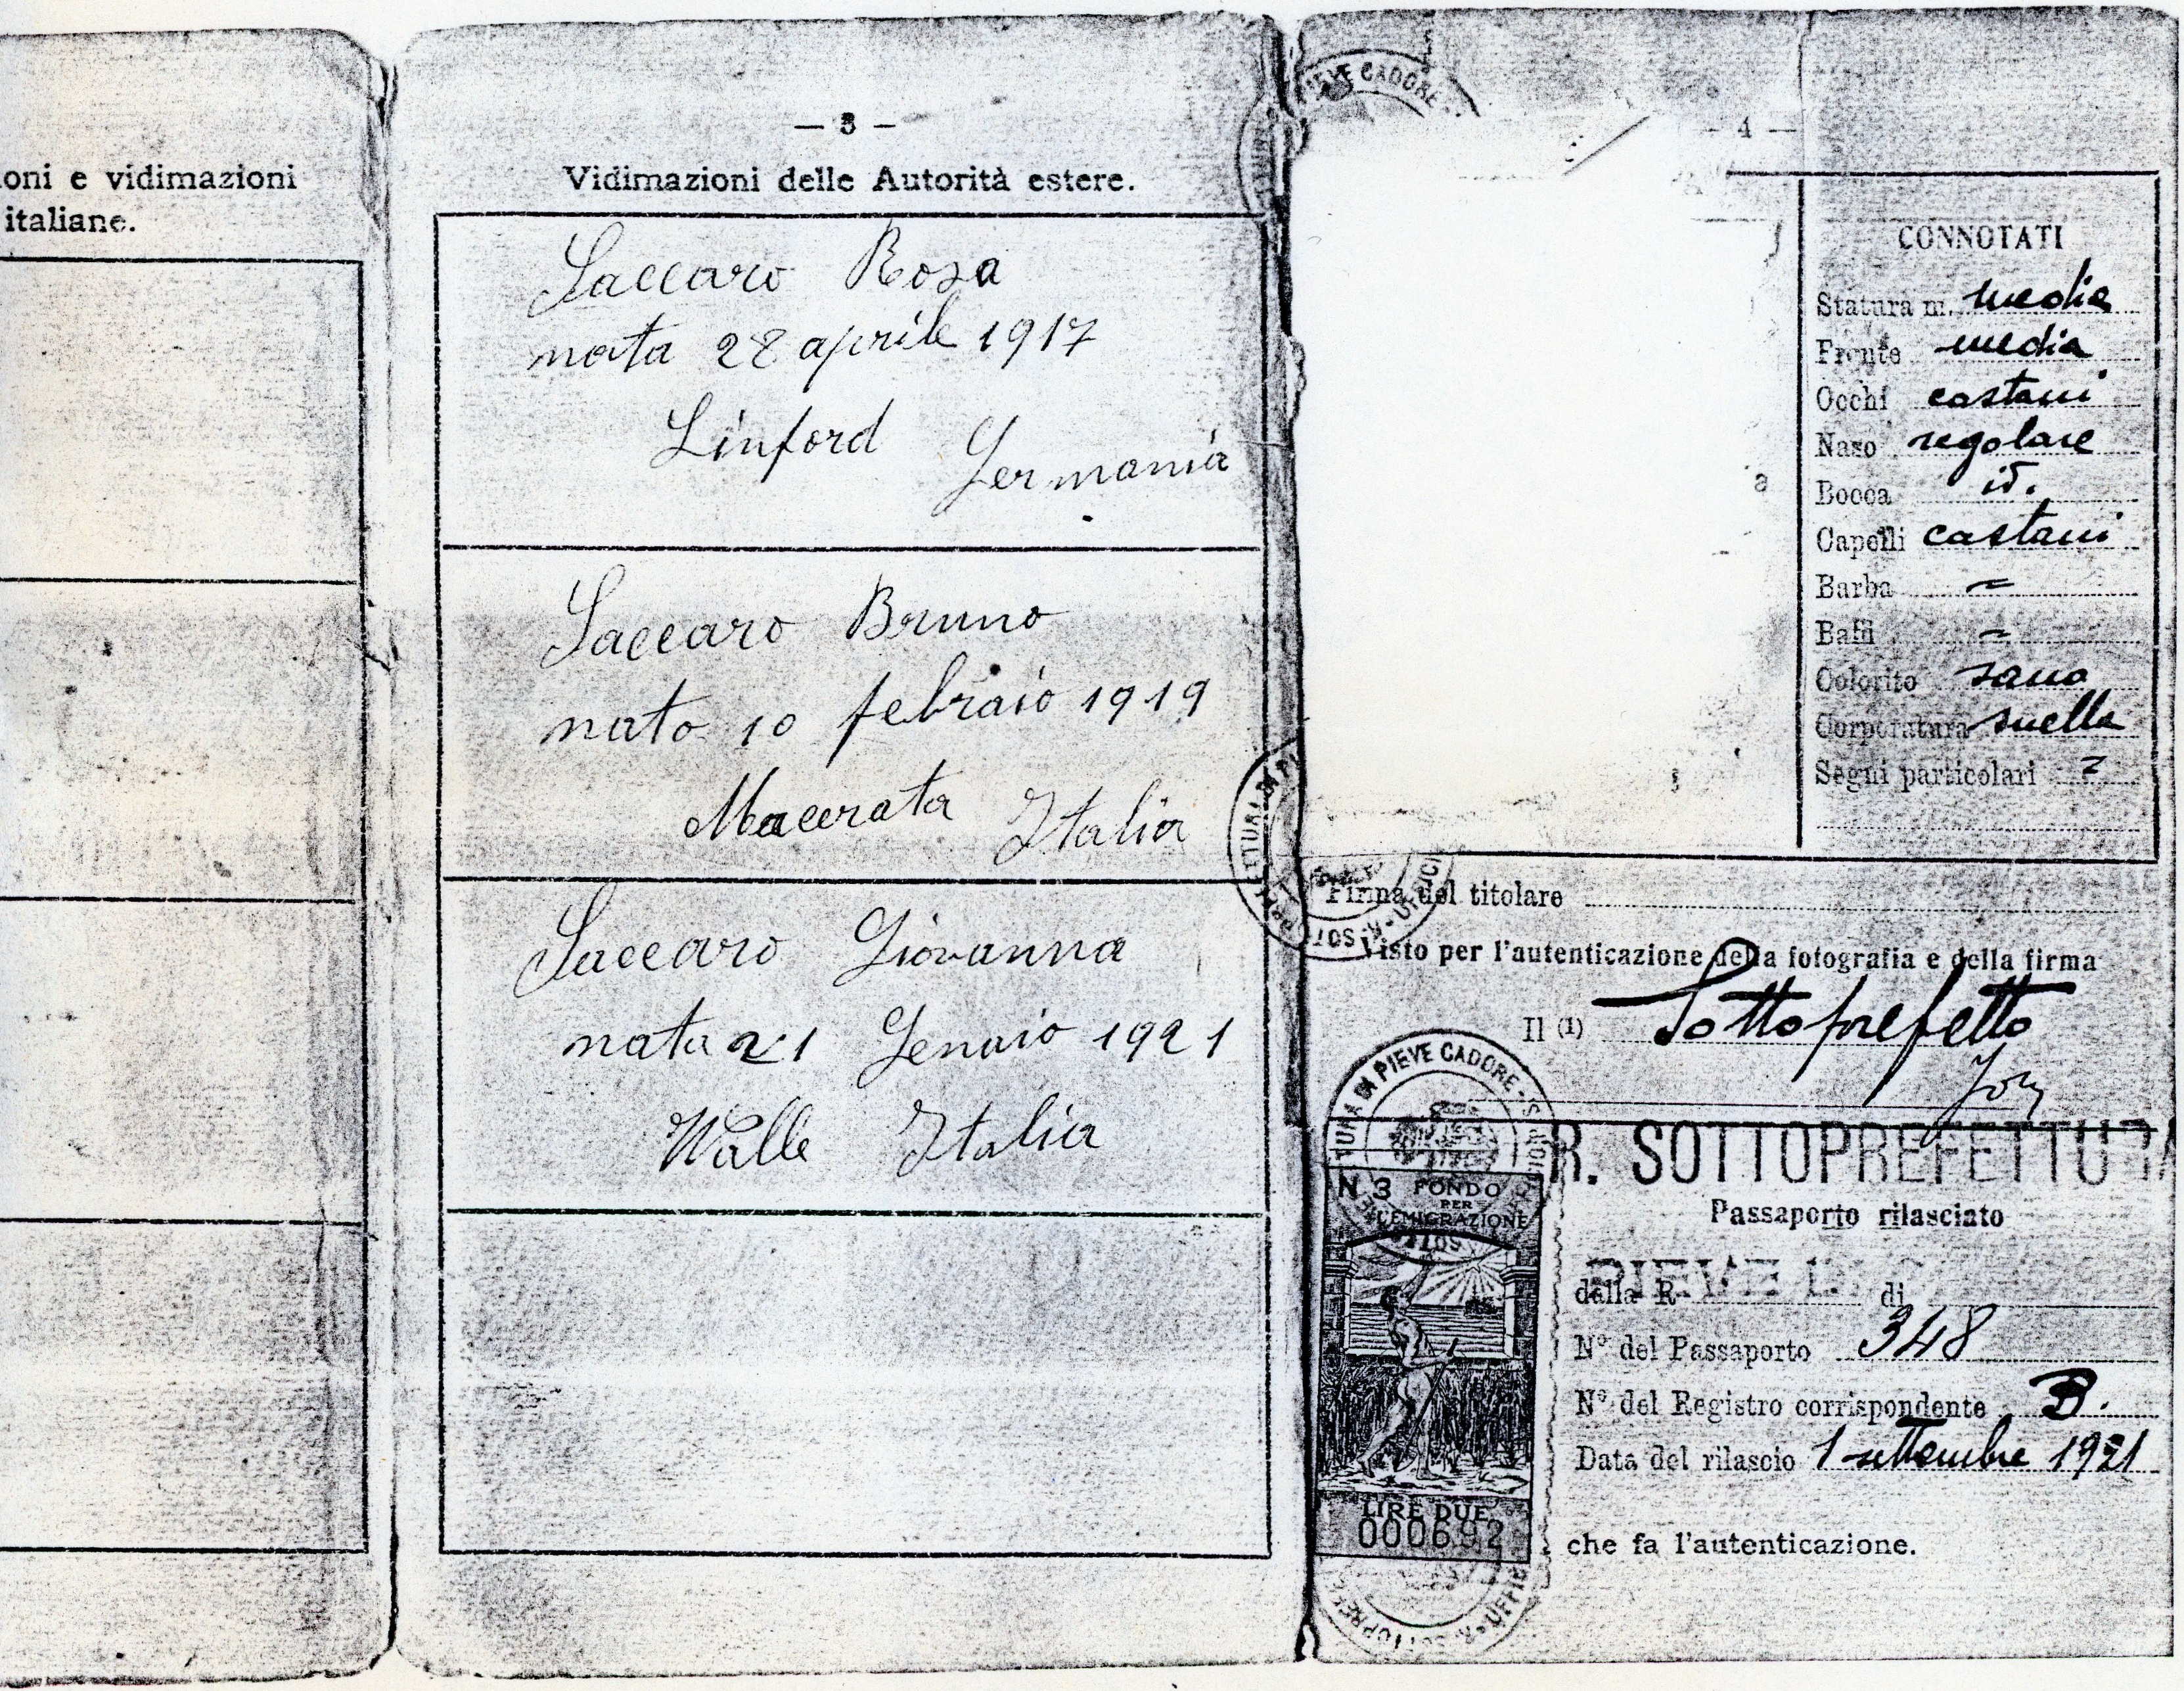 oni e vidimazioni
italiane.
— 3 —
Vidimazioni delle Autorità estere.
Saccaro Rosa
nata 28 aprile 1917
Linford Germania
Saccaro Bruno
nato 10 febraio 1919
Macerata Italia
Saccaro Giovanna
nata 21 Genaio 1921
Walle Italia
PIEVE CADORE
— 4 —
CONNOTATI
Statura m. media
Fronte media
Occhi castani
Naso regolare
Bocca id.
Capelli castani
Barba ~
Baffi ~
Colorito sano
Corporatura snella
Segni particolari
Firma del titolare
Visto per l'autenticazione della fotografia e della firma
Il (1) Sottoprefetto
TURA DI PIEVE CADORE
R. SOTTOPREFETTURA
N. 3 FONDO
PER
L'EMIGRAZIONE
Passaporto rilasciato
PIEVE
dalla R di
N° del Passaporto 348
N° del Registro corrispondente B.
Data del rilascio 1 settembre 1921
LIRE DUE
000692
che fa l'autenticazione.